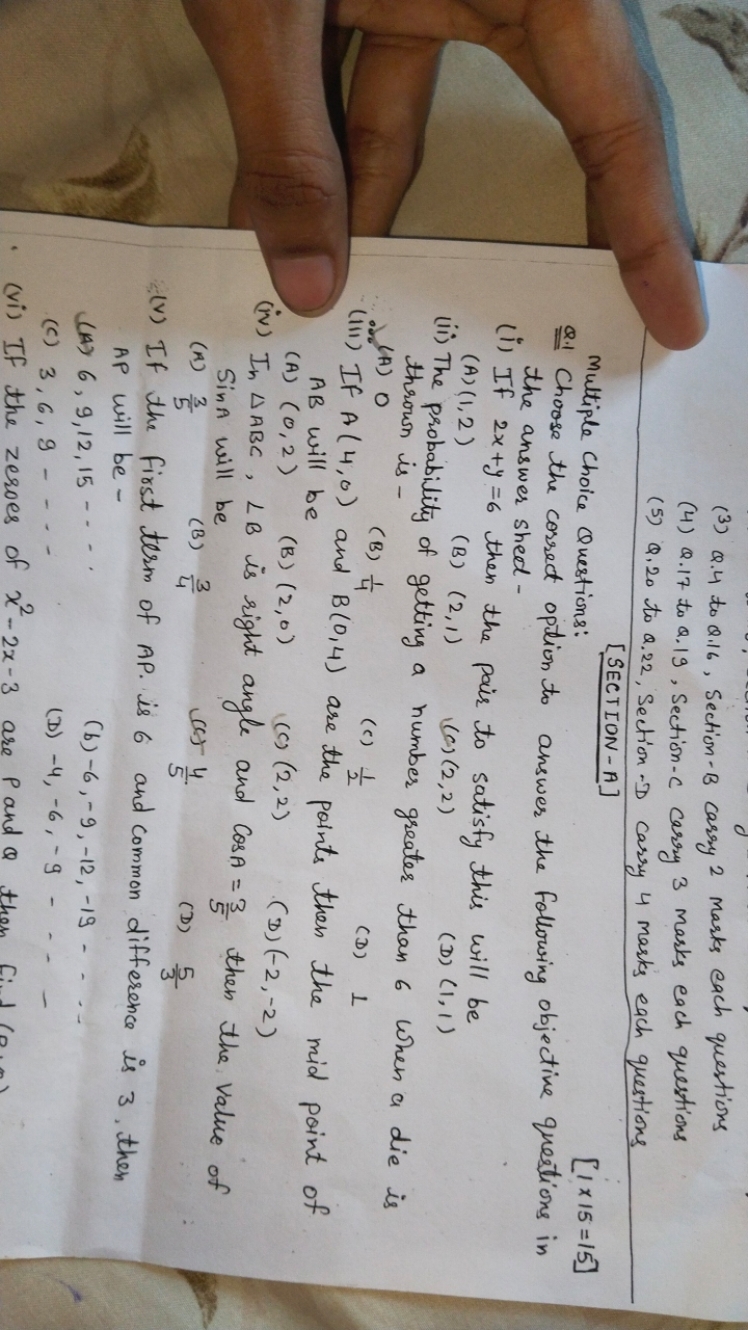 (3) Q.4 to Q.16, Section-B carry 2 marks each questions
(4) Q.17 to Q.19, Section-C carry 3 marks each questions
(5) Q.20 to Q.22, Section-D carry 4 marks each questions
[SECTION-A]
Multiple Choice Questions: [1×15=15]
Q.1 Choose the corred option to answer the following objective questions in
the answer shed-
(i) If 2x+y=6 then the pair to satisfy this will be
(A) (1,2) (B) (2,1) (C) (2,2) (D) (1,1)
(ii) The probability of getting a number greater than 6 when a die is
thrown is-
(A) 0 (B) 1/4 (C) 1/2 (D) 1
(iii) If A(4,0) and B(0,4) are the points then the mid point of
AB will be
(A) (0,2) (B) (2,0) (C) (2,2) (D) (-2,-2)
(iv) In △ABC, ∠B is right angle and CosA = 3/5 then the value of
SinA will be
(A) 3/5 (B) 3/4 (C) 4/5 (D) 5/3
(V) If the first term of AP. is 6 and common difference is 3, then
AP will be-
(A) 6, 9, 12, 15 - - - - (b) -6, -9, -12, -19 - - - -
(C) 3, 6, 9 - - - - (D) -4, -6, -9 - - - -
(vi) If the zeroes of x²-2x-3 are P and Q then find